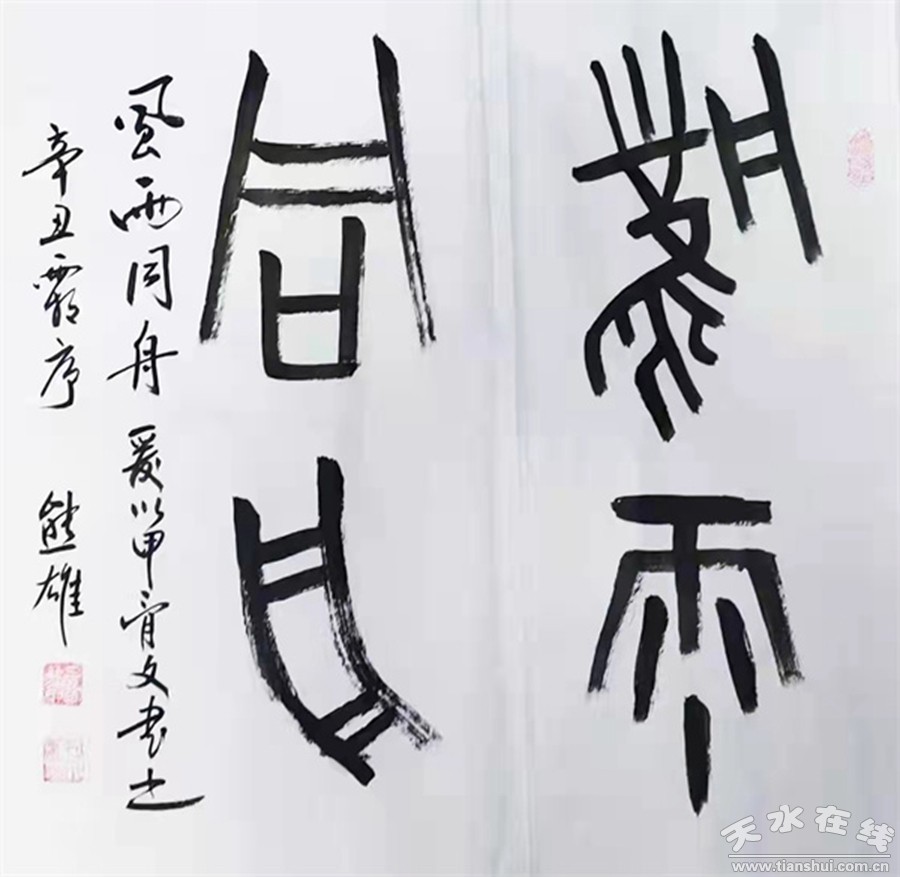 風雨
同舟
風雨同舟 爰以甲骨文書之
辛丑霜序 熊雄
天水在线
www.tianshui.com.cn